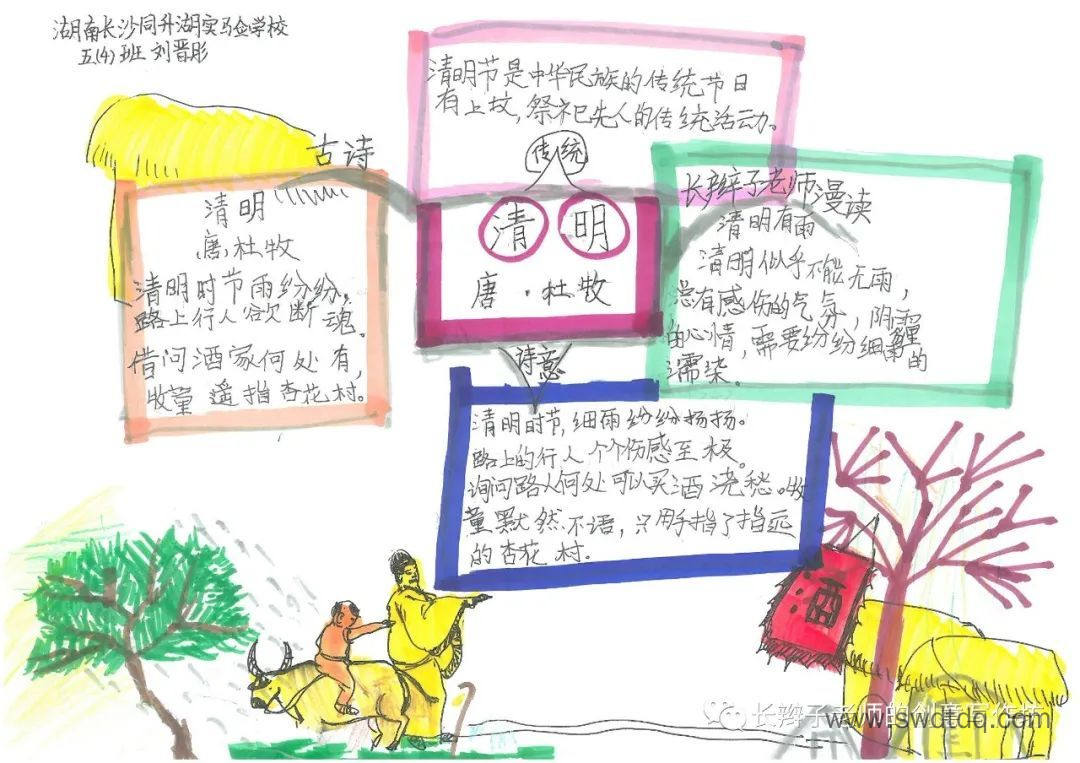 湖南长沙同升湖实验学校
五(4)班 刘晋彤
清明节是中华民族的传统节日
有上坟,祭祀先人的传统活动。
传统
古诗
清明
唐,杜牧
清明时节雨纷纷,
路上行人欲断魂。
借问酒家何处有,
牧童遥指杏花村。
清明
唐·杜牧
长辫子老师漫读
清明有雨
清明似乎不能无雨,
总有感伤的气氛,阴霾
的心情,需要纷纷细雨的
濡染。
诗意
清明时节,细雨纷纷扬扬。
路上的行人个个伤感至极。
询问路人何处可以买酒浇愁。牧
童默然不语,只用手指了指远
的杏花村。
酒
长辫子老师的创意写作坊
www.swdtdq.com